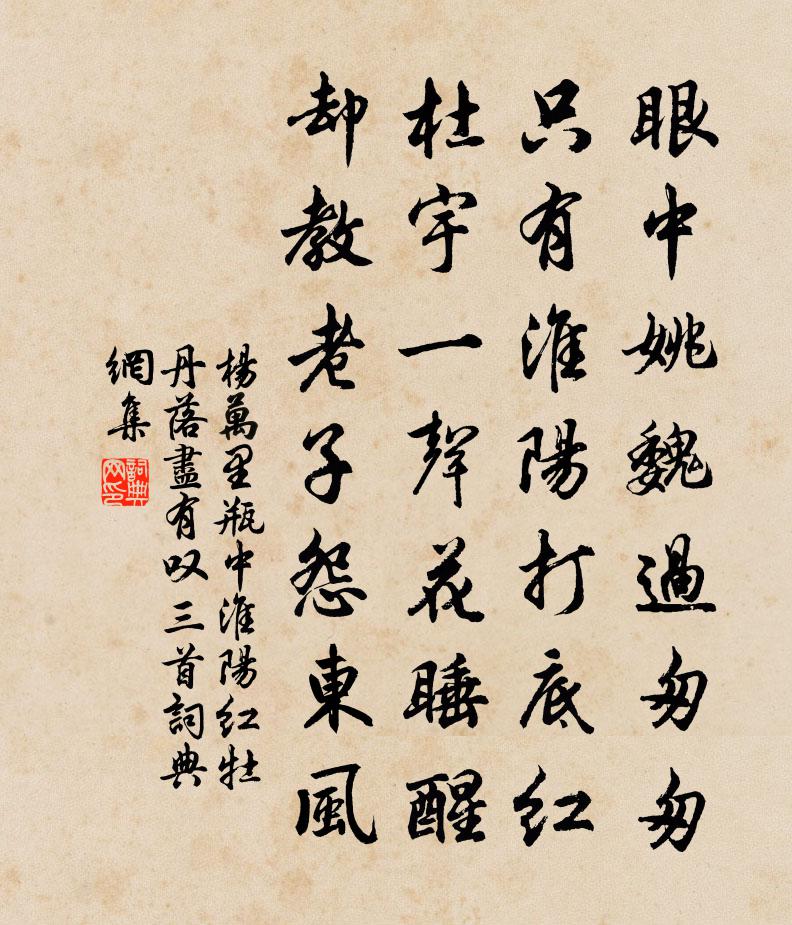 眼中姚魏過匆匆
只有淮陽打底紅
杜宇一聲花睡醒
却教老子怨東風
楊萬里瓶中淮陽紅牡
丹落盡有叹三首詞典
網集
詞典网印